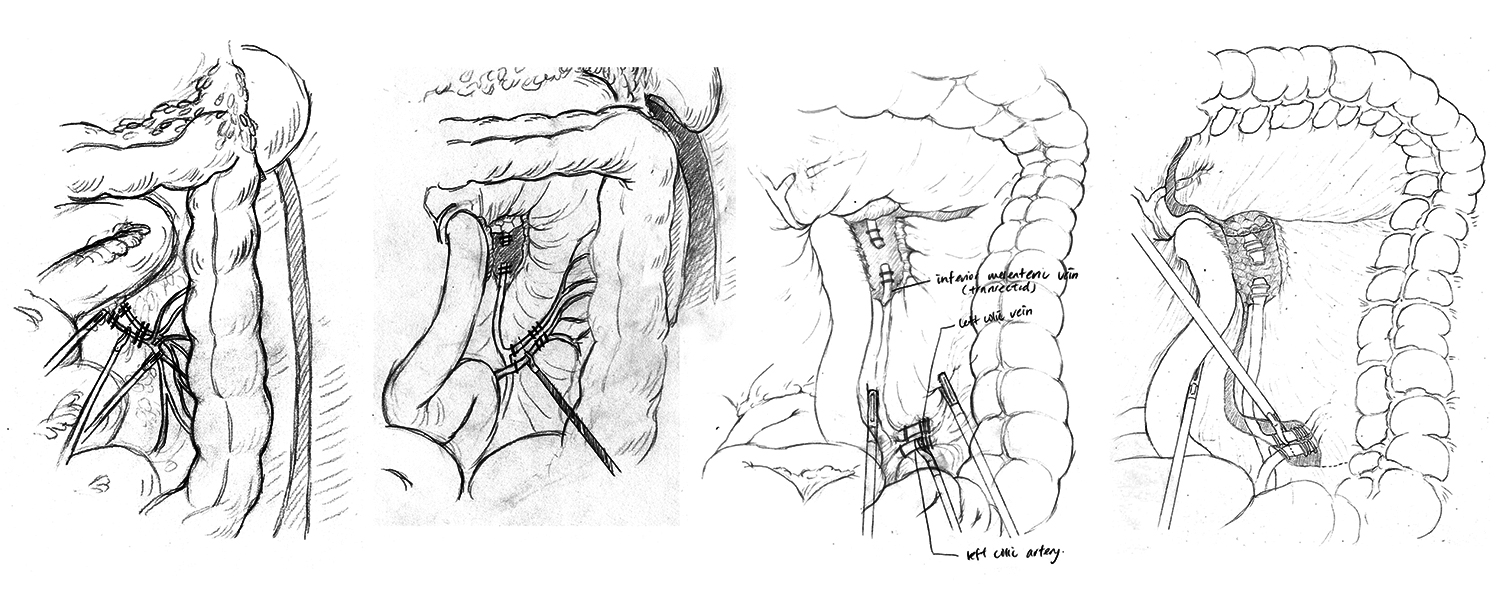 inferior mesenteric vein
(transected)
left colic vein
left colic artery.